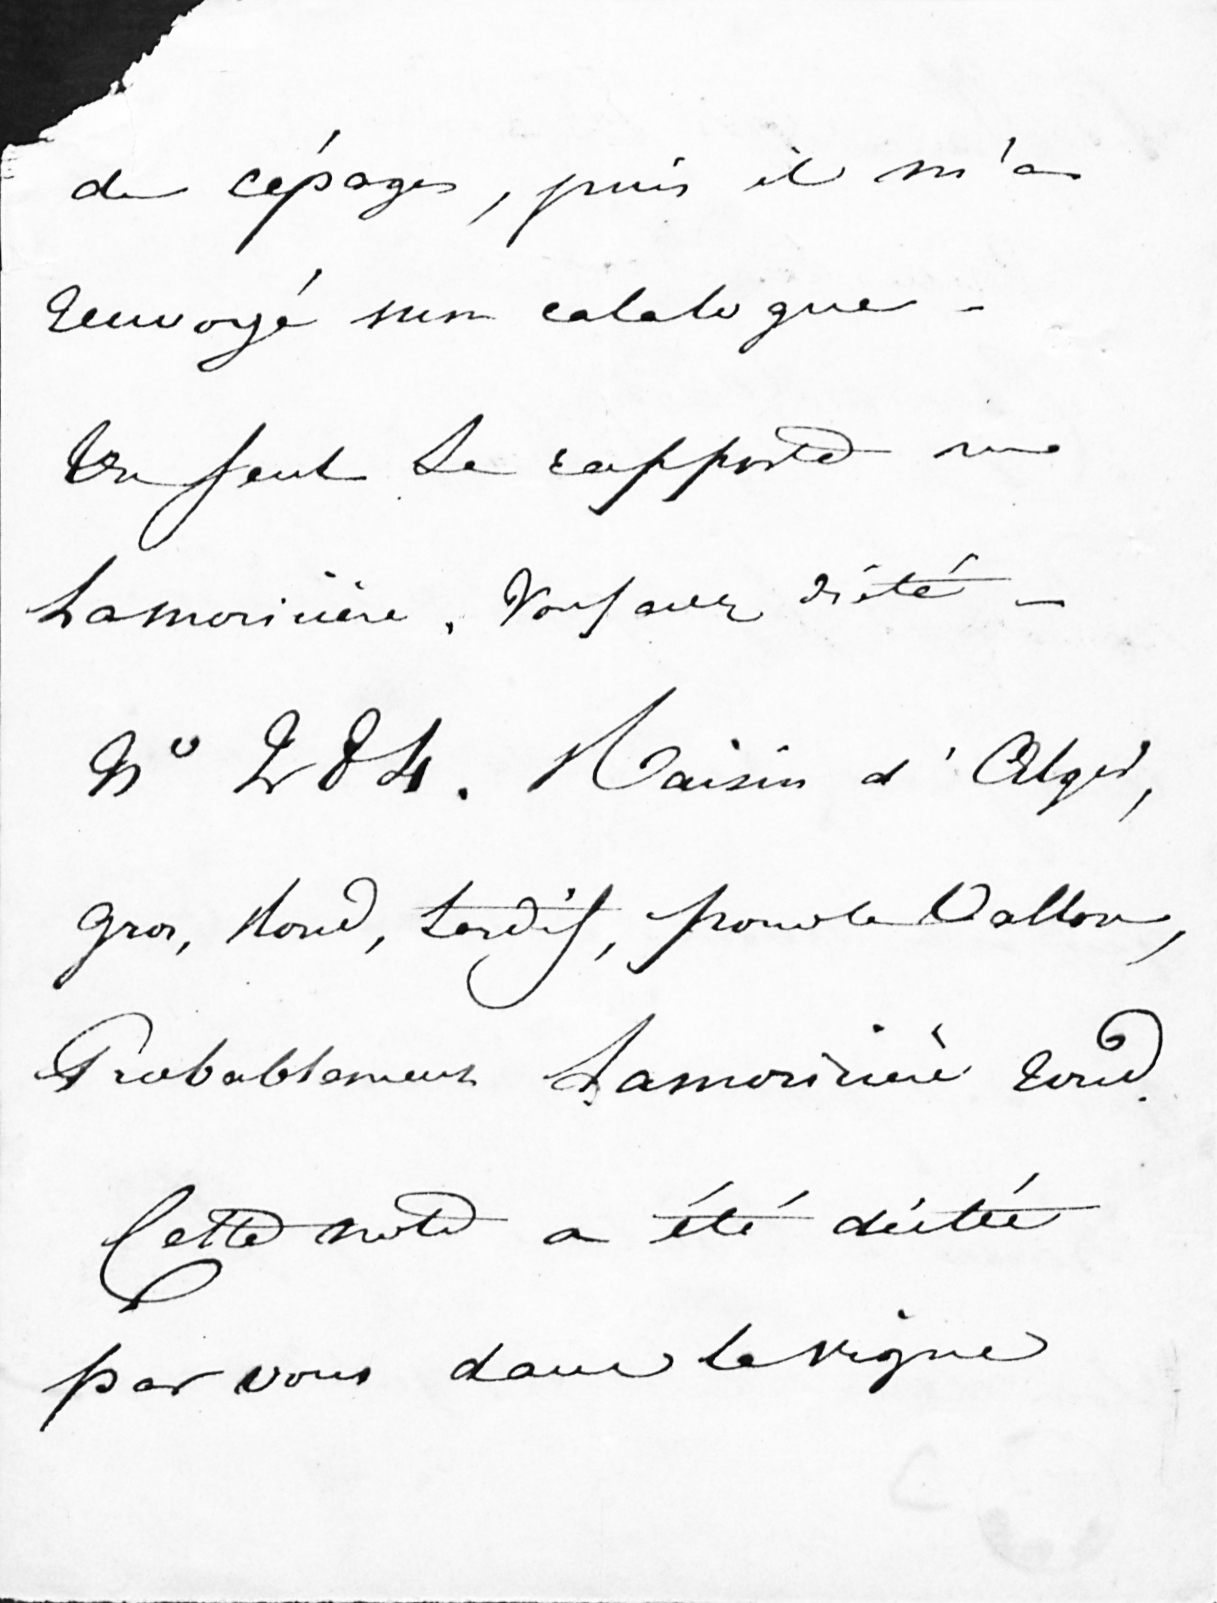 de cépages, puis il m'a
renvoyé mon catalogue -
Un seul se rapporte au
Lamoricière. Vous avez dicté -
N° 284. Raisin d'Alger,
gros, rond, tardif, pour le Vallon,
Probablement Lamoricière rond.
Cette note a été dictée
par vous dans la vigne